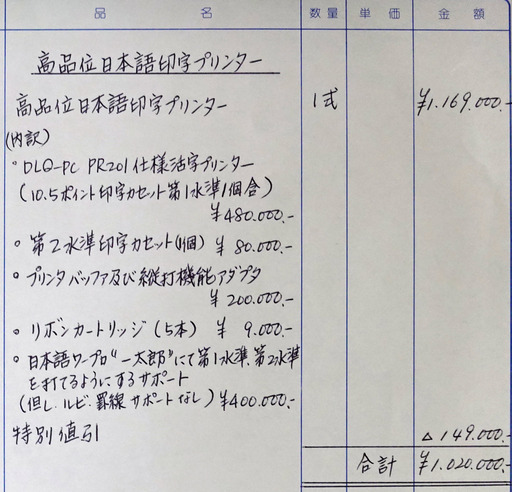 品名 数量 単価 金額
高品位日本語印字プリンター
高品位日本語印字プリンター 1式 ¥1.169.000.-
(内訳)
・DLQ-PC PR201仕様活字プリンター
(10.5ポイント印字カセット第1水準1個含)
¥480.000.-
・第2水準印字カセット(1個) ¥80.000.-
・プリンタバッファ及び縦打機能アダプタ
¥200.000.-
・リボンカートリッジ(5本) ¥9.000.-
・日本語ワープロ"一太郎"にて第1水準、第2水準
を打てるようにするサポート
(但し、ルビ・罫線サポートなし)¥400.000.-
特別値引 △149.000.-
合計 ¥1.020.000.-